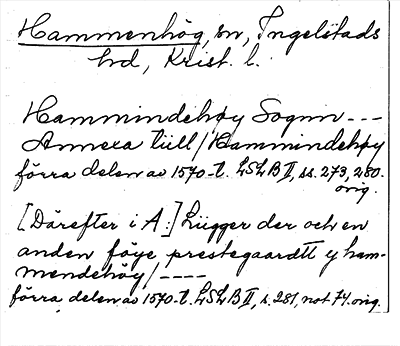 Hammenhög, sn, Ingelstads
hd, Krist. l.
Hammindehøy Sognn ---
Annexa till / Hammindehøy
förra delen av 1570-t. LSLB II, ss. 273, 280.
orig.
[Därefter i A:] Liigger der och en
anden föye prestegaardtt y ham-
mendehöy / ----
förra delen av 1570-t. LSLB II, s. 281, not 74. orig.